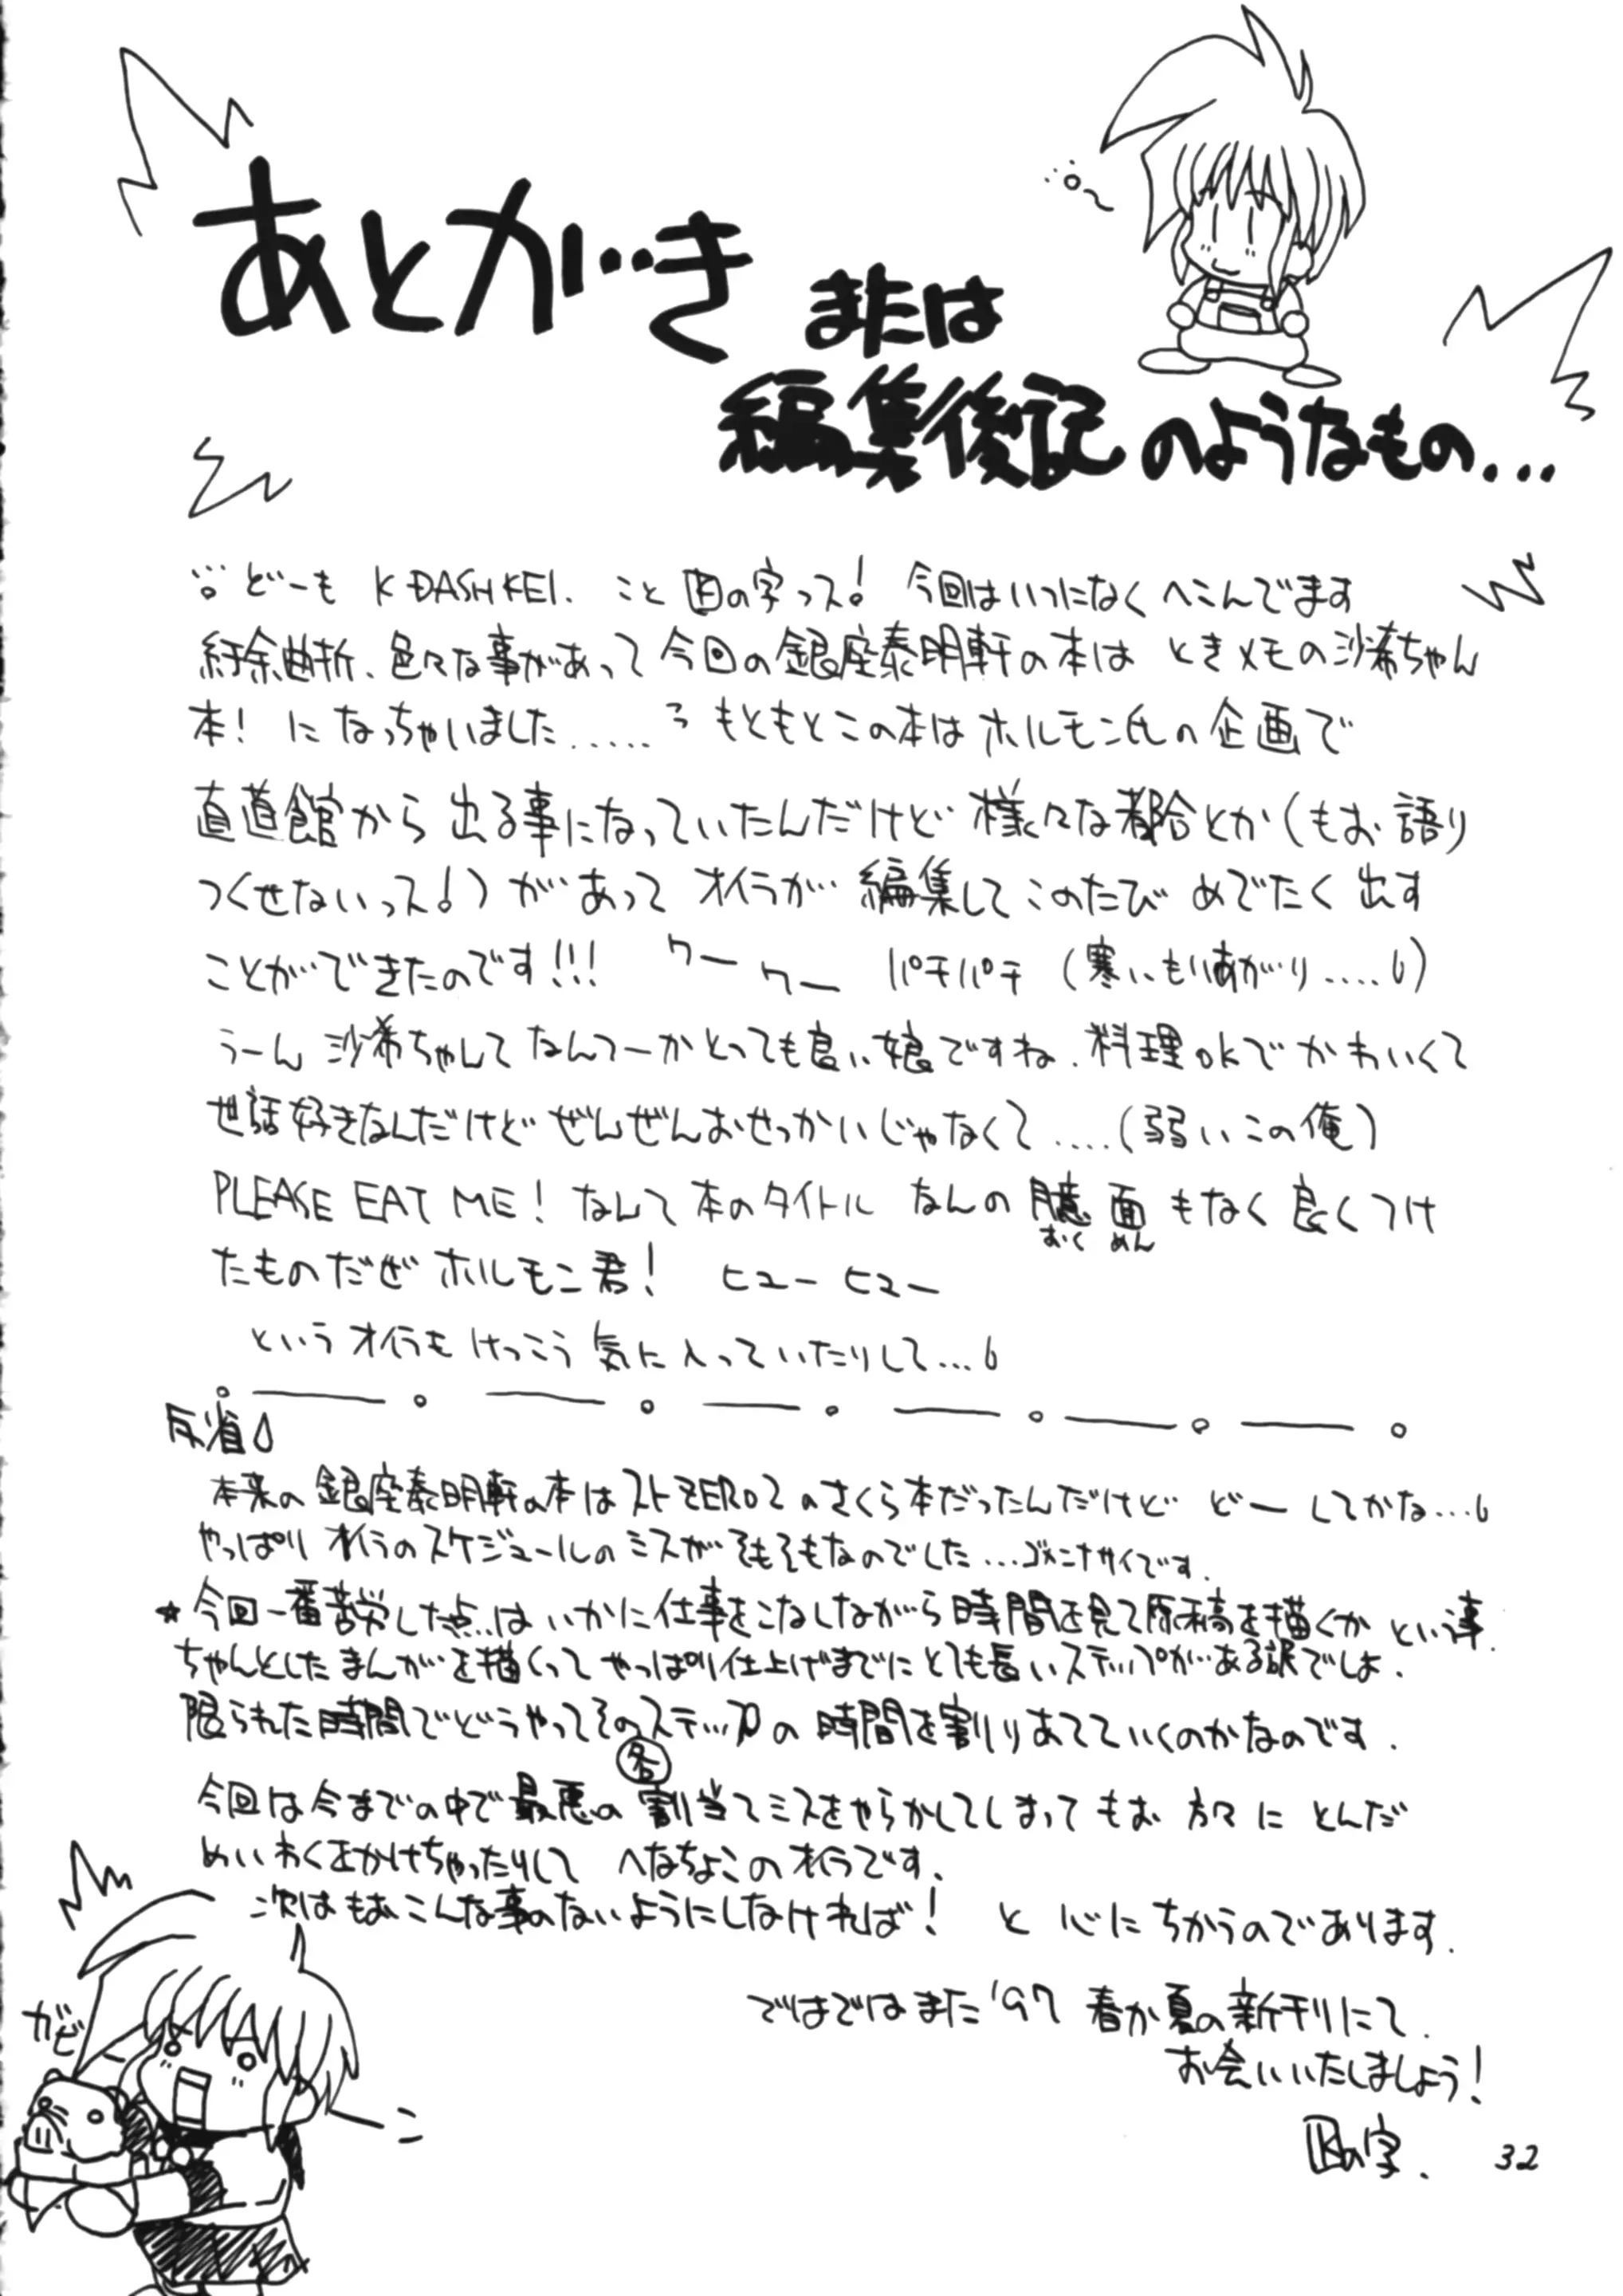 あとがき または
編集後記のようなもの...
どーも K-DASH KEI. こと の字っス! 今回はいつになくへこんでます
紆余曲折、色々な事があって今回の銀座泰明軒の本は ときメモの沙希ちゃん
本! に なっちゃいました..... もともとこの本はホルモン氏の企画で
直道館から出る事になっていたんだけど 様々な都合とか(もお語り
つくせないっス!)があって オイラが編集してこのたび めでたく出す
ことができたのです!!! ワーワー パチパチ (寒いもりあがり....)
うーん 沙希ちゃんて なんつーかとっても良い娘ですね. 料理OKで かわいくて
世話好きなんだけど ぜんぜんおせっかいじゃなくて....(弱いこの俺)
PLEASE EAT ME! なんて本のタイトル なんの臆面もなく良くつけ
おく めん
たものだぜ ホルモン君! ヒューヒュー
という オイラも けっこう気に入っていたりして...
反省
本来の銀座泰明軒の本はストZERO2のさくら本だったんだけど どーしてかな...
やっぱり オイラのスケジュールのミスがそもそもなのでした...ゴメンナサイです.
★今回一番苦労した点..は いかに仕事をこなしながら時間を見て原稿を描くか という事.
ちゃんとしたまんがを描くって やっぱり仕上げまでにとても長いステップがある訳でしょ.
限られた時間でどうやってそのステップの時間を割りあてていくのかなのです.
各
今回は今までの中で最悪の割り当てミスをやらかしてしまって もお 方々に とんだ
めいわくをかけちゃったりして へなちょこのオイラです.
次はもおこんな事のないようにしなければ! と 心に ちかうのであります.
ではではまた '97 春か夏の新刊にて.
お会いいたしましょう!
の字.
32
ガビ